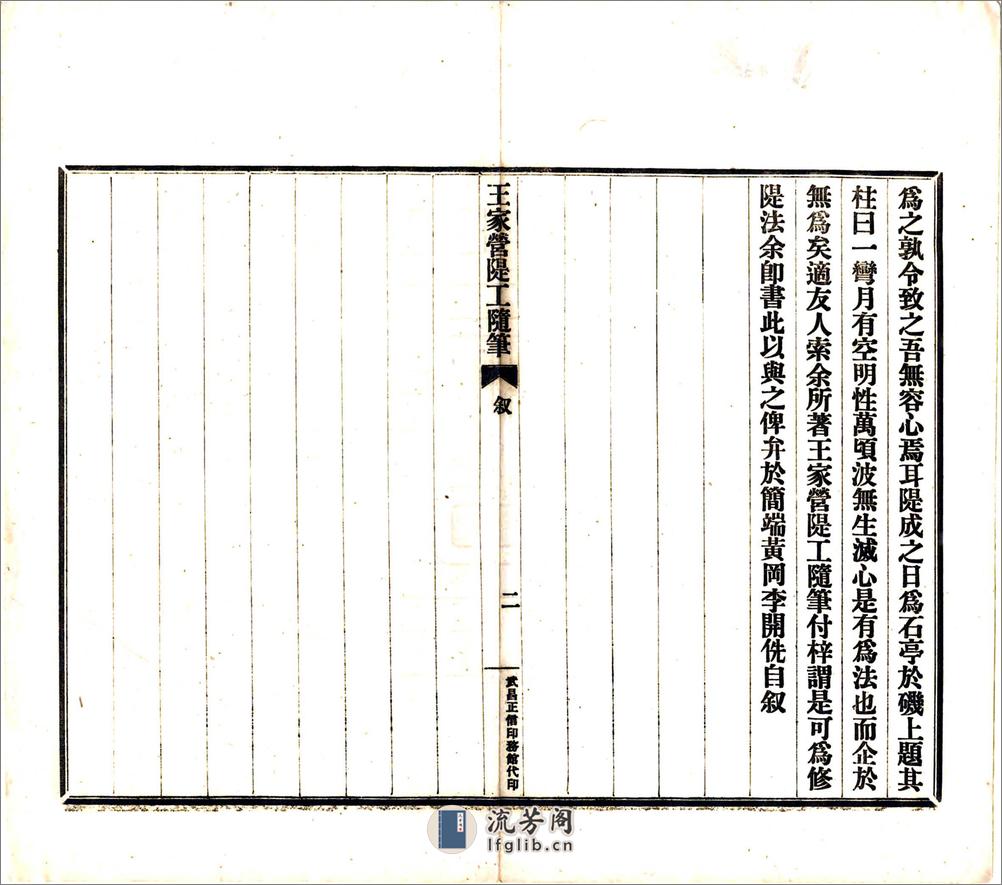 爲之孰令致之吾無容心焉耳隄成之日爲石亭於磯上題其
柱曰一彎月有空明性萬頃波無生滅心是有爲法也而企於
無爲矣適友人索余所著王家營隄工隨筆付梓謂是可爲修
隄法余卽書此以與之俾弁於簡端黃岡李開侁自叙
王家營隄工隨筆
叙
二
武昌正信印務館代印
流芳阁
lfglib.cn